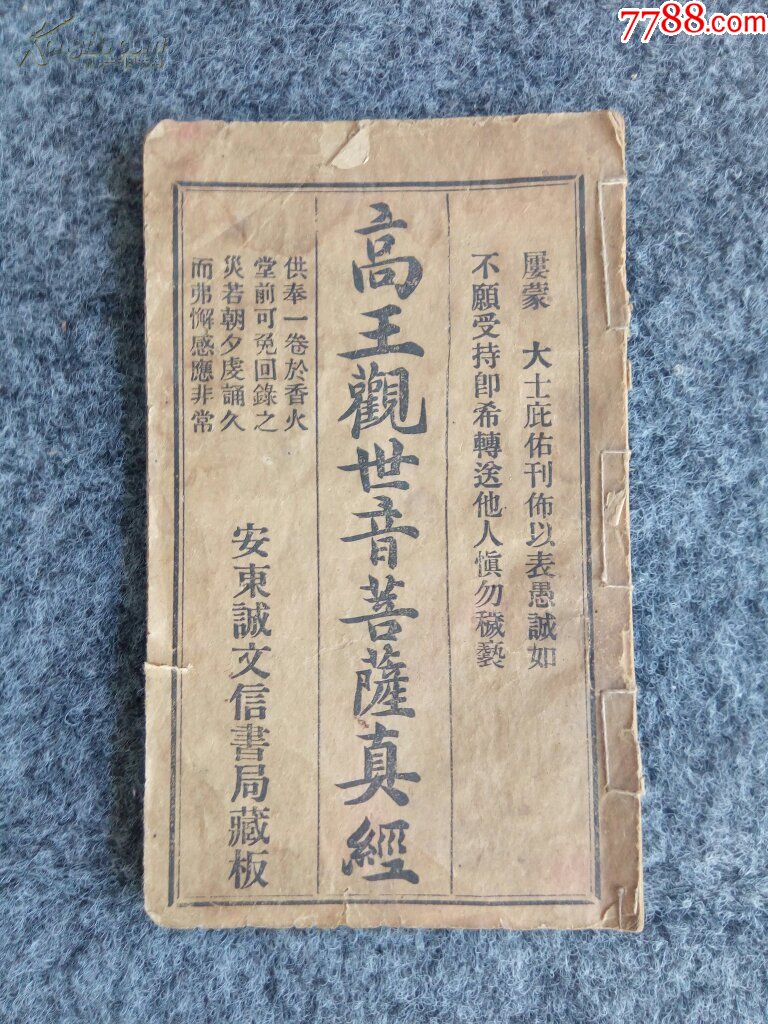 7788.com
屢蒙　大士庇佑刊佈以表愚誠如
不願受持卽希轉送他人愼勿穢褻
高王觀世音菩薩真經
供奉一卷於香火
堂前可免回錄之
災若朝夕虔誦久
而弗懈感應非常
安東誠文信書局藏板